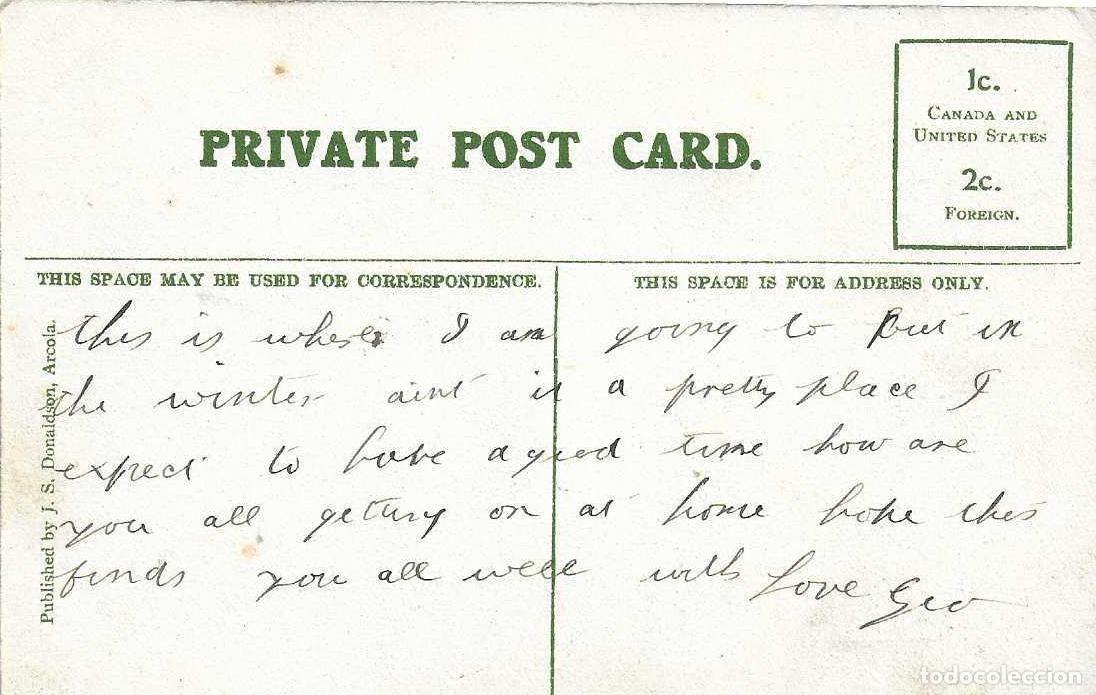 PRIVATE POST CARD.
1c.
CANADA AND
UNITED STATES
2c.
FOREIGN.
THIS SPACE MAY BE USED FOR CORRESPONDENCE.
THIS SPACE IS FOR ADDRESS ONLY.
Published by J. S. Donaldson, Arcola.
this is where I am going to Put in
the winter aint it a pretty place I
expect to have a good time how are
you all getting on at home hope this
finds you all well with Love Geo
todocoleccion